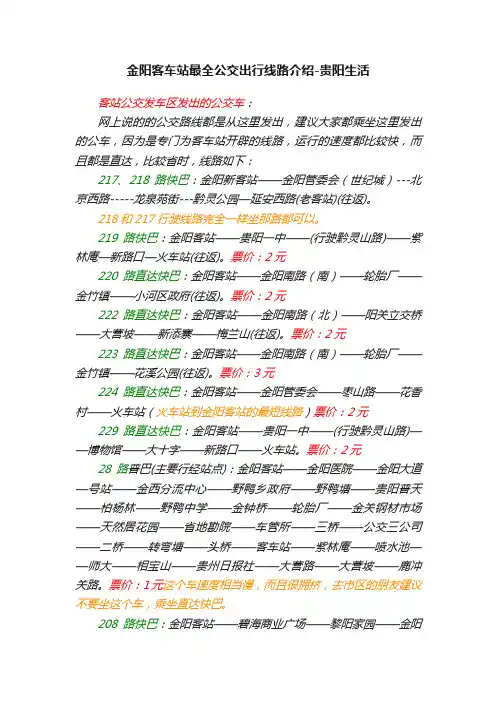 金阳客车站最全公交出行线路介绍-贵阳生活
客站公交发车区发出的公交车：
网上说的的公交路线都是从这里发出，建议大家都乘坐这里发出
的公车，因为是专门为客车站开辟的线路，运行的速度都比较快，而
且都是直达，比较省时，线路如下：
217、218路快巴：金阳新客站——金阳管委会（世纪城）---北
京西路-----龙泉苑街---黔灵公园—延安西路(老客站)(往返)。
218和217行驶线路完全一样坐那路都可以。
219路快巴：金阳客站——贵阳一中——(行驶黔灵山路)——紫
林庵—新路口—火车站(往返)。票价：2元
220路直达快巴：金阳客站——金阳南路（南）——轮胎厂——
金竹镇——小河区政府(往返)。票价：2元
222路直达快巴：金阳客站——金阳南路（北）——阳关立交桥
——大营坡——新添寨——梅兰山(往返)。票价：2元
223路直达快巴：金阳客站——金阳南路（南）——轮胎厂——
金竹镇——花溪公园(往返)。票价：3元
224路直达快巴：金阳客站——金阳管委会——枣山路——花香
村——火车站（火车站到金阳客站的最短线路）票价：2元
229路直达快巴：金阳客站——贵阳一中——(行驶黔灵山路)—
—博物馆——大十字——新路口——火车站。票价：2元
28路普巴(主要行经站点)：金阳客站——金阳医院——金阳大道
—号站——金西分流中心——野鸭乡政府——野鸭塘——贵阳普天
——柏杨林——野鸭中学——金钟桥——轮胎厂——金关钢材市场
——天然居花园——省地勘院——车管所——三桥——公交三公司
——二桥——转弯塘——头桥——客车站——紫林庵——喷水池—
—师大——相宝山——贵州日报社——大营路——大营坡——鹿冲
关路。票价：1元这个车速度相当慢，而且很拥挤，去市区的朋友建议
不要坐这个车，乘坐直达快巴。
208路快巴：金阳客站——碧海商业广场——黎阳家园——金阳